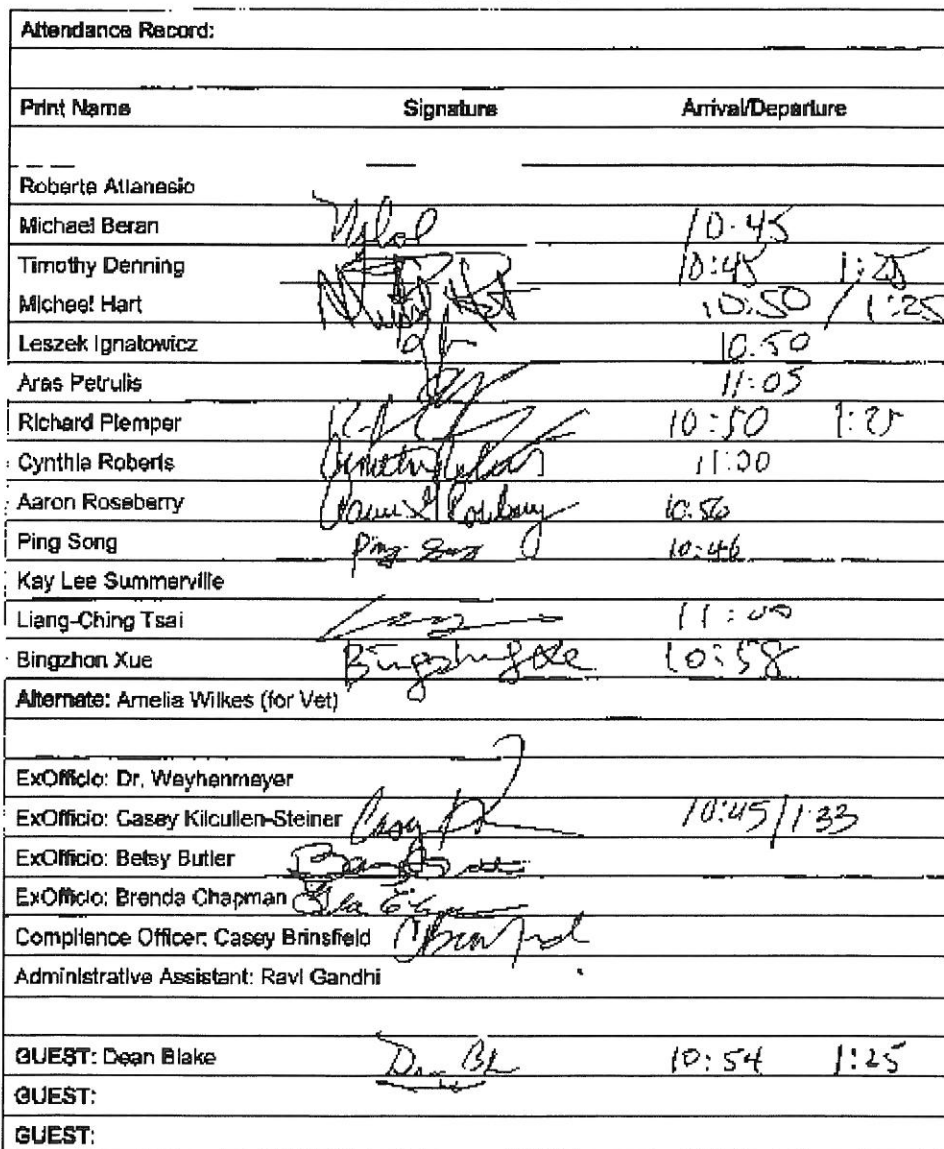 Attendance Record:
Print Name Signature Arrival/Departure
Roberta Attanasio
Michael Beran 10:45
Timothy Denning 10:45 1:25
Michael Hart 10:50 / 1:25
Leszek Ignatowicz 10:50
Aras Petrulis 11:05
Richard Plemper 10:50 1:25
Cynthia Roberts Cynthia Roberts 11:00
Aaron Roseberry Aaron Roseberry 10:56
Ping Song Ping Song 10:46
Kay Lee Summerville
Liang-Ching Tsai 11:00
Bingzhon Xue Bingzhong Xue 10:58
Alternate: Amelia Wilkes (for Vet)
ExOfficio: Dr. Weyhenmeyer
ExOfficio: Casey Kilcullen-Steiner Casey 10:45/1:33
ExOfficio: Betsy Butler
ExOfficio: Brenda Chapman
Compliance Officer: Casey Brinsfield
Administrative Assistant: Ravi Gandhi
GUEST: Dean Blake 10:54 1:25
GUEST:
GUEST: